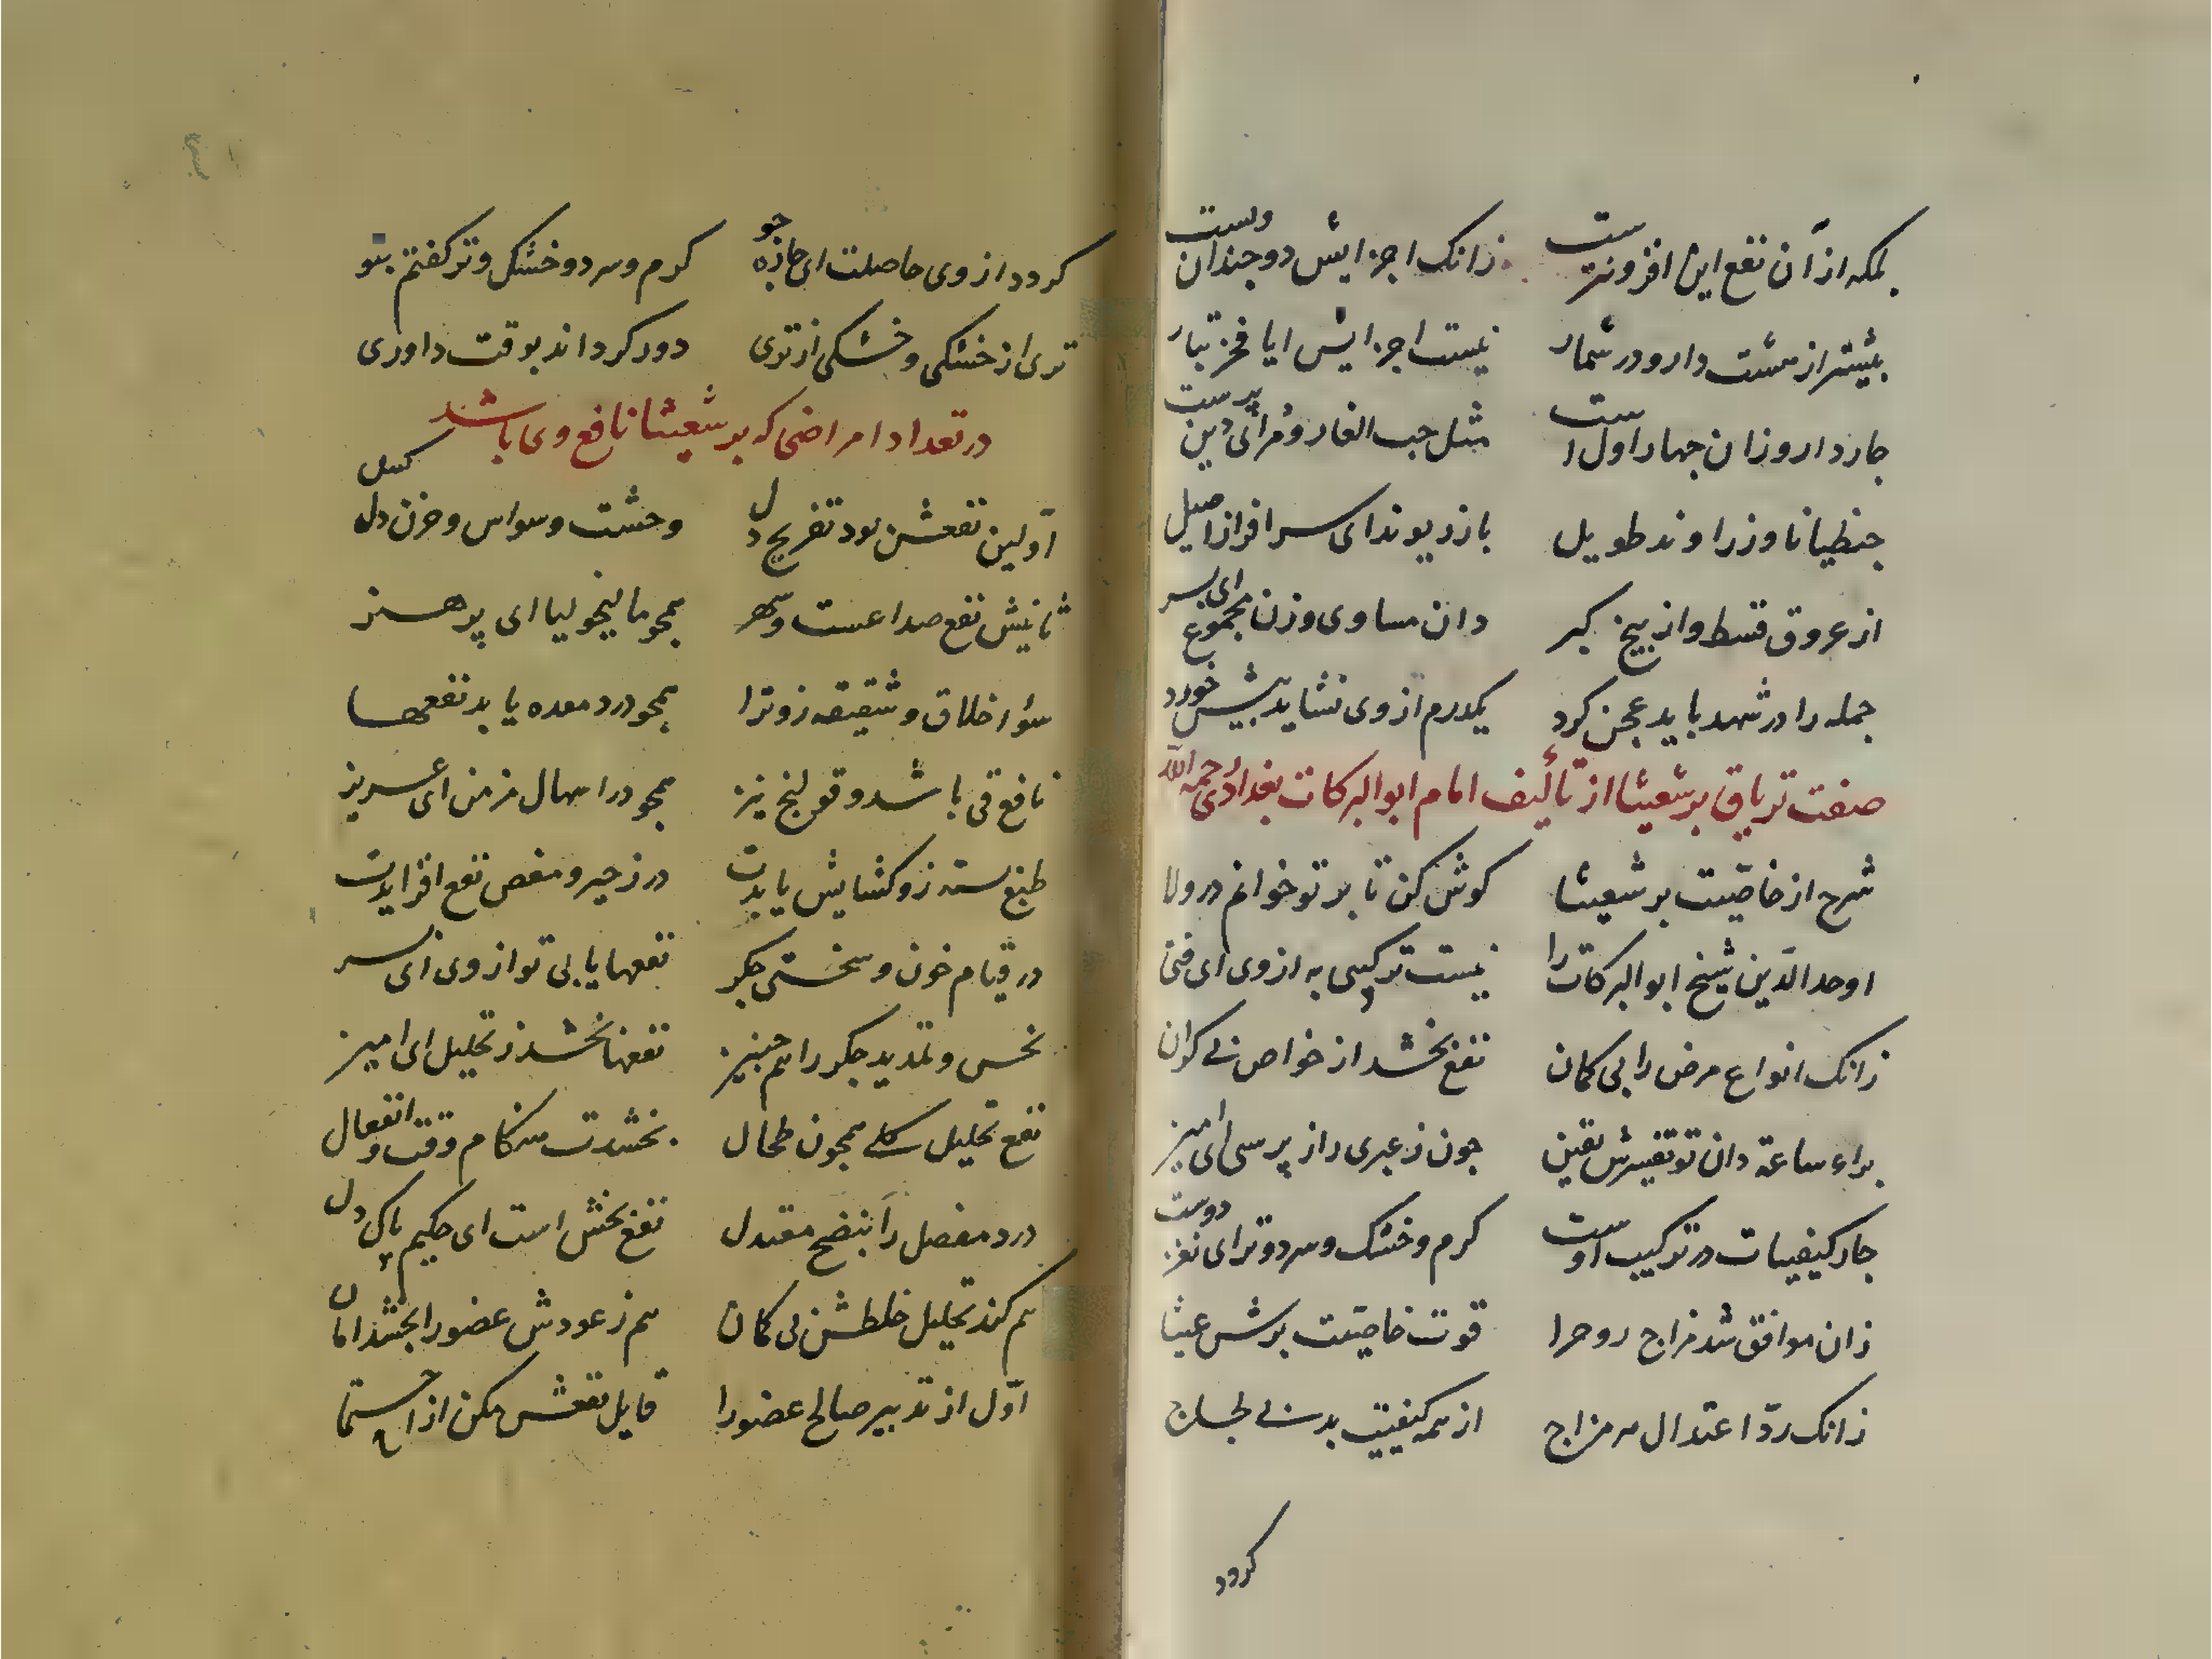 بلکه از آن نفع این افزونترست زانک اجزایش دوچندان ولست
بیشتر از هشت دارو در شمار نیست اجزایش ایا فخر تبار
چار دارو زان چهار اول است مثل حب الغار و مرای دین پرست
جنطیانا و زراوند طویل بازدیوند ای سرافراز اصیل
از عروق قسط و از بیخ کبر دان مساوی وزن مجموع ای پسر
جمله را در شهد باید عجن کرد یکدرم از وی نشاید بیش خورد
صفت تریاق برشعیثا از تألیف امام ابوالبرکات بغدادی رحمه الله
شرح از خاصیت برشعیثا کوش کن تا بر تو خوانم در ولا
اوحدالدین شیخ ابوالبرکات را نیست ترکیبی به از وی ای فتی
زانک انواع مرض را بی کمان نفع بخشد از خواص بی کران
براء ساعة دان تو تفسیرش یقین چون ز عبری راز پرسی ای امیز
چار کیفیات در ترکیب اوست کرم و خشک و سرد و تر ای نغز دوست
زان موافق شد مزاج روح را قوت خاصیت برشعیثا
زانک رد اعتدال هر مزاج از همه کیفیت بدبی لجاج
کردد
کردد از وی حاصلت ای چازه جو کرم و سرد و خشک و تر کفتم بتو
تری از خشکی و خشکی از تری دور کرداند بوقت داوری
در تعداد امراضی که برشعیثا نافع وی باشد
اولین نفعش بود تفریح دل وحشت و وسواس و حزن دل کسل
ثانیش نفع صداعست و سهر همچو مالیخولیا ای پر هنر
سؤ اخلاق و شقیقه زو ترا همچو درد معده یابد نفعها
نافع قی باشد و قولنج نیز همچو در اسهال مزمن ای عزیز
طبع بسته زو کشایش یابدت در زحیر و مغص نفع افزایدت
در قیام خون و سختی جکر نفعها یابی تو از وی ای سر
نخس و تمدید جکر را هم چنیز نفعها بخشد ز تحلیل ای امیز
نفع تحلیل کلی همچون طحال بخشدت هنکام وقت و انفعال
درد مفصل را بنضح معتدل نفع بخش است ای حکیم پاک دل
هم کند تحلیل خلطش بی کمان هم ز عودش عضو را بخشد امان
اول از تدبیر صالح عضو را قابل نفعش مکن از احتما